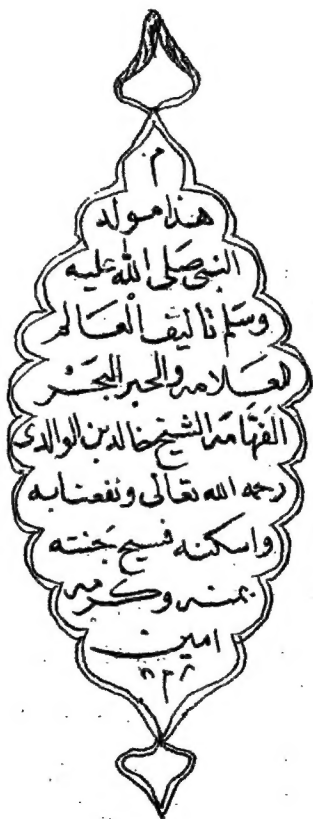 م
هذا مولد
النبى صلى الله عليه
وسلم تأليف العالم
العلامه والحبر البحر
الفهامه الشيخ خالد بن الوالدى
رحمه الله تعالى ونفعنا به
واسكنه فسيح جنته
بمنه وكرمه
امين